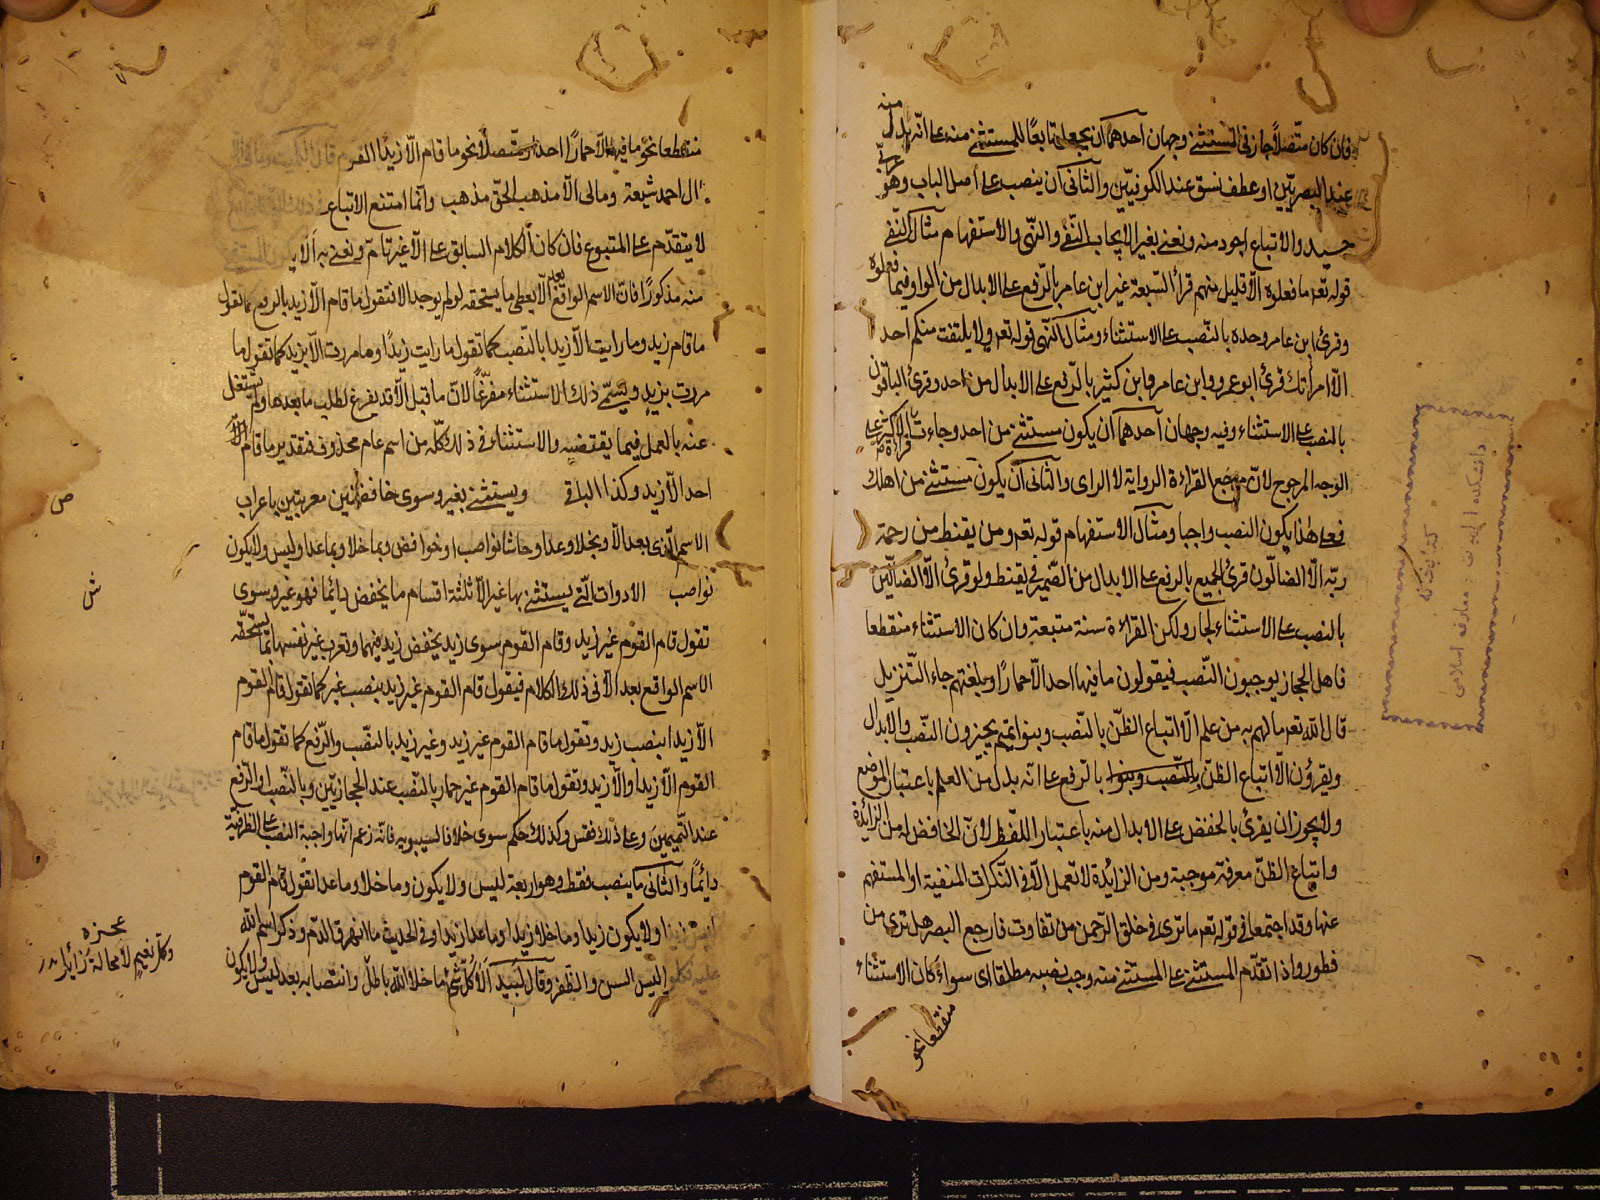 فان كان متصلا جاز فى المستثنى وجهان احدهما ان يجعل تابعا للمستثنى منه على انه بدل منه
عند البصريين او عطف نسق عند الكوفيين والثانى ان ينصب على اصل الباب وهو عربى
جيد والاتباع اجود منه ونعنى بغير الايجاب النفى والنهى والاستفهام مثال النفى
قوله تعه ما فعلوه الا قليل منهم قرأ السبعة غير ابن عامر بالرفع على الابدال من الواو فيما فعلوه
وقرئ ابن عامر وحده بالنصب على الاستثناء ومثال النهى قوله تعه ولا يلتفت منكم احد
الا امرأتك قرئ ابو عمرو وابن عامر وابن كثير بالرفع على الابدال من احد وقرئ الباقون
بالنصب على الاستثناء وفيه وجهان احدهما ان يكون مستثنى من احد وجاءت قراءة الاكثر على
الوجه المرجوح لان مرجع القراءة الرواية لا الراى والثانى ان يكون مستثنى من اهلك
فعلى هذا يكون النصب واجبا ومثال الاستفهام قوله تعه ومن يقنط من رحمة
ربه الا الضالون قرئ الجميع بالرفع على الابدال من الضمير فى يقنط ولو قرئ الا الضالين
بالنصب على الاستثناء لجاز ولكن القراءة سنة متبعة وان كان الاستثناء منقطعا
فاهل الحجاز يوجبون النصب فيقولون ما فيها احد الا حمارا وبلغتهم جاء التنزيل
قال الله تعه ما لهم به من علم الا اتباع الظن بالنصب وبنو تميم يجيزون النصب والابدال
ويقرؤن الا اتباع الظن بالنصب وبنوا بالرفع على انه بدل من العلم باعتبار الموضع
ولا يجوز ان يقرئ بالخفض على الابدال منه باعتبار اللفظ لان الخافض له من الزائدة
واتباع الظن معرفة موجبة ومن الزائدة لا تعمل الا فى النكرات المنفية او المستفهم
عنها وقد اجتمعا فى قوله تعه ما ترى فى خلق الرحمن من تفاوت فارجع البصر هل ترى من
فطور واذا تقدم المستثنى على المستثنى منه وجب نصبه مطلقا اى سواء كان الاستثناء
منقطعا نحو
كتابخانه
دانشكده الهيات و معارف اسلامى
منقطعا نحو ما فيها الا حمارا احد او متصلا نحو ما قام الا زيدا القوم قال الكميت ومالى الا
ال احمد شيعة ومالى الا مذهب الحق مذهب وانما امتنع الاتباع
لا يتقدم على المتبوع فان كان الكلام السابق على الا غير تام ونعنى به الا
منه مذكورا فان الاسم الواقع بعد الا يعطى ما يستحقه لو لم يوجد الا فتقول ما قام الا زيد بالرفع كما تقول
ما قام زيد وما رايت الا زيدا بالنصب كما تقول ما رايت زيدا وما مررت الا بزيد كما تقول ما
مررت بزيد ويسمى ذلك الاستثناء مفرغا لان ما قبل الا قد يفرغ لطلب ما بعدها ولم يشتغل
عنه بالعمل فيما يقتضيه والاستثناء فى ذلك كله من اسم عام محذوف فتقدير ما قام الا
احد الا زيد وكذا الباقى ويستثنى بغير وسوى خافضين معربتين باعراب
ص
الاسم الذى بعد الا وبخلا وعدا وحاشا نواصب او خوافض وبما خلا وبما عدا وليس ولا يكون
نواصب الادوات التى يستثنى بها غير الا ثلثة اقسام ما يخفض دائما فهو غير وسوى
ش
تقول قام القوم غير زيد وقام القوم سوى زيد بخفض زيد فيهما وتعرب غير نفسها بما يستحقه
الاسم الواقع بعد الا فى ذلك الكلام فيقول قام القوم غير زيد بنصب غير كما تقول قام القوم
الا زيدا بنصب زيد وتقول ما قام القوم غير زيد وغير زيد بالنصب والرفع كما تقول ما قام
القوم الا زيدا والا زيد وتقول ما قام القوم غير حمار بالنصب عند الحجازيين وبالنصب او الرفع
عند التميمين وعلى ذلك فقس وكذلك حكم سوى خلافا لسيبويه فانه زعم انها واجبة النصب على الظرفية
دائما والثانى ما ينصب فقط وهو اربعة ليس ولا يكون وما خلا وما عدا تقول قام القوم
ليس زيدا او لا يكون زيدا وما خلا زيدا او ما عدا زيدا وفى الحديث ما انهر الدم وذكر اسم الله
عليه فكلوا ليس السن والظفر وقال لبيد الا كل شئ ما خلا الله باطل وانتصابه بعد ليس ولا يكون
عجزه
وكل نعيم لا محالة زائل